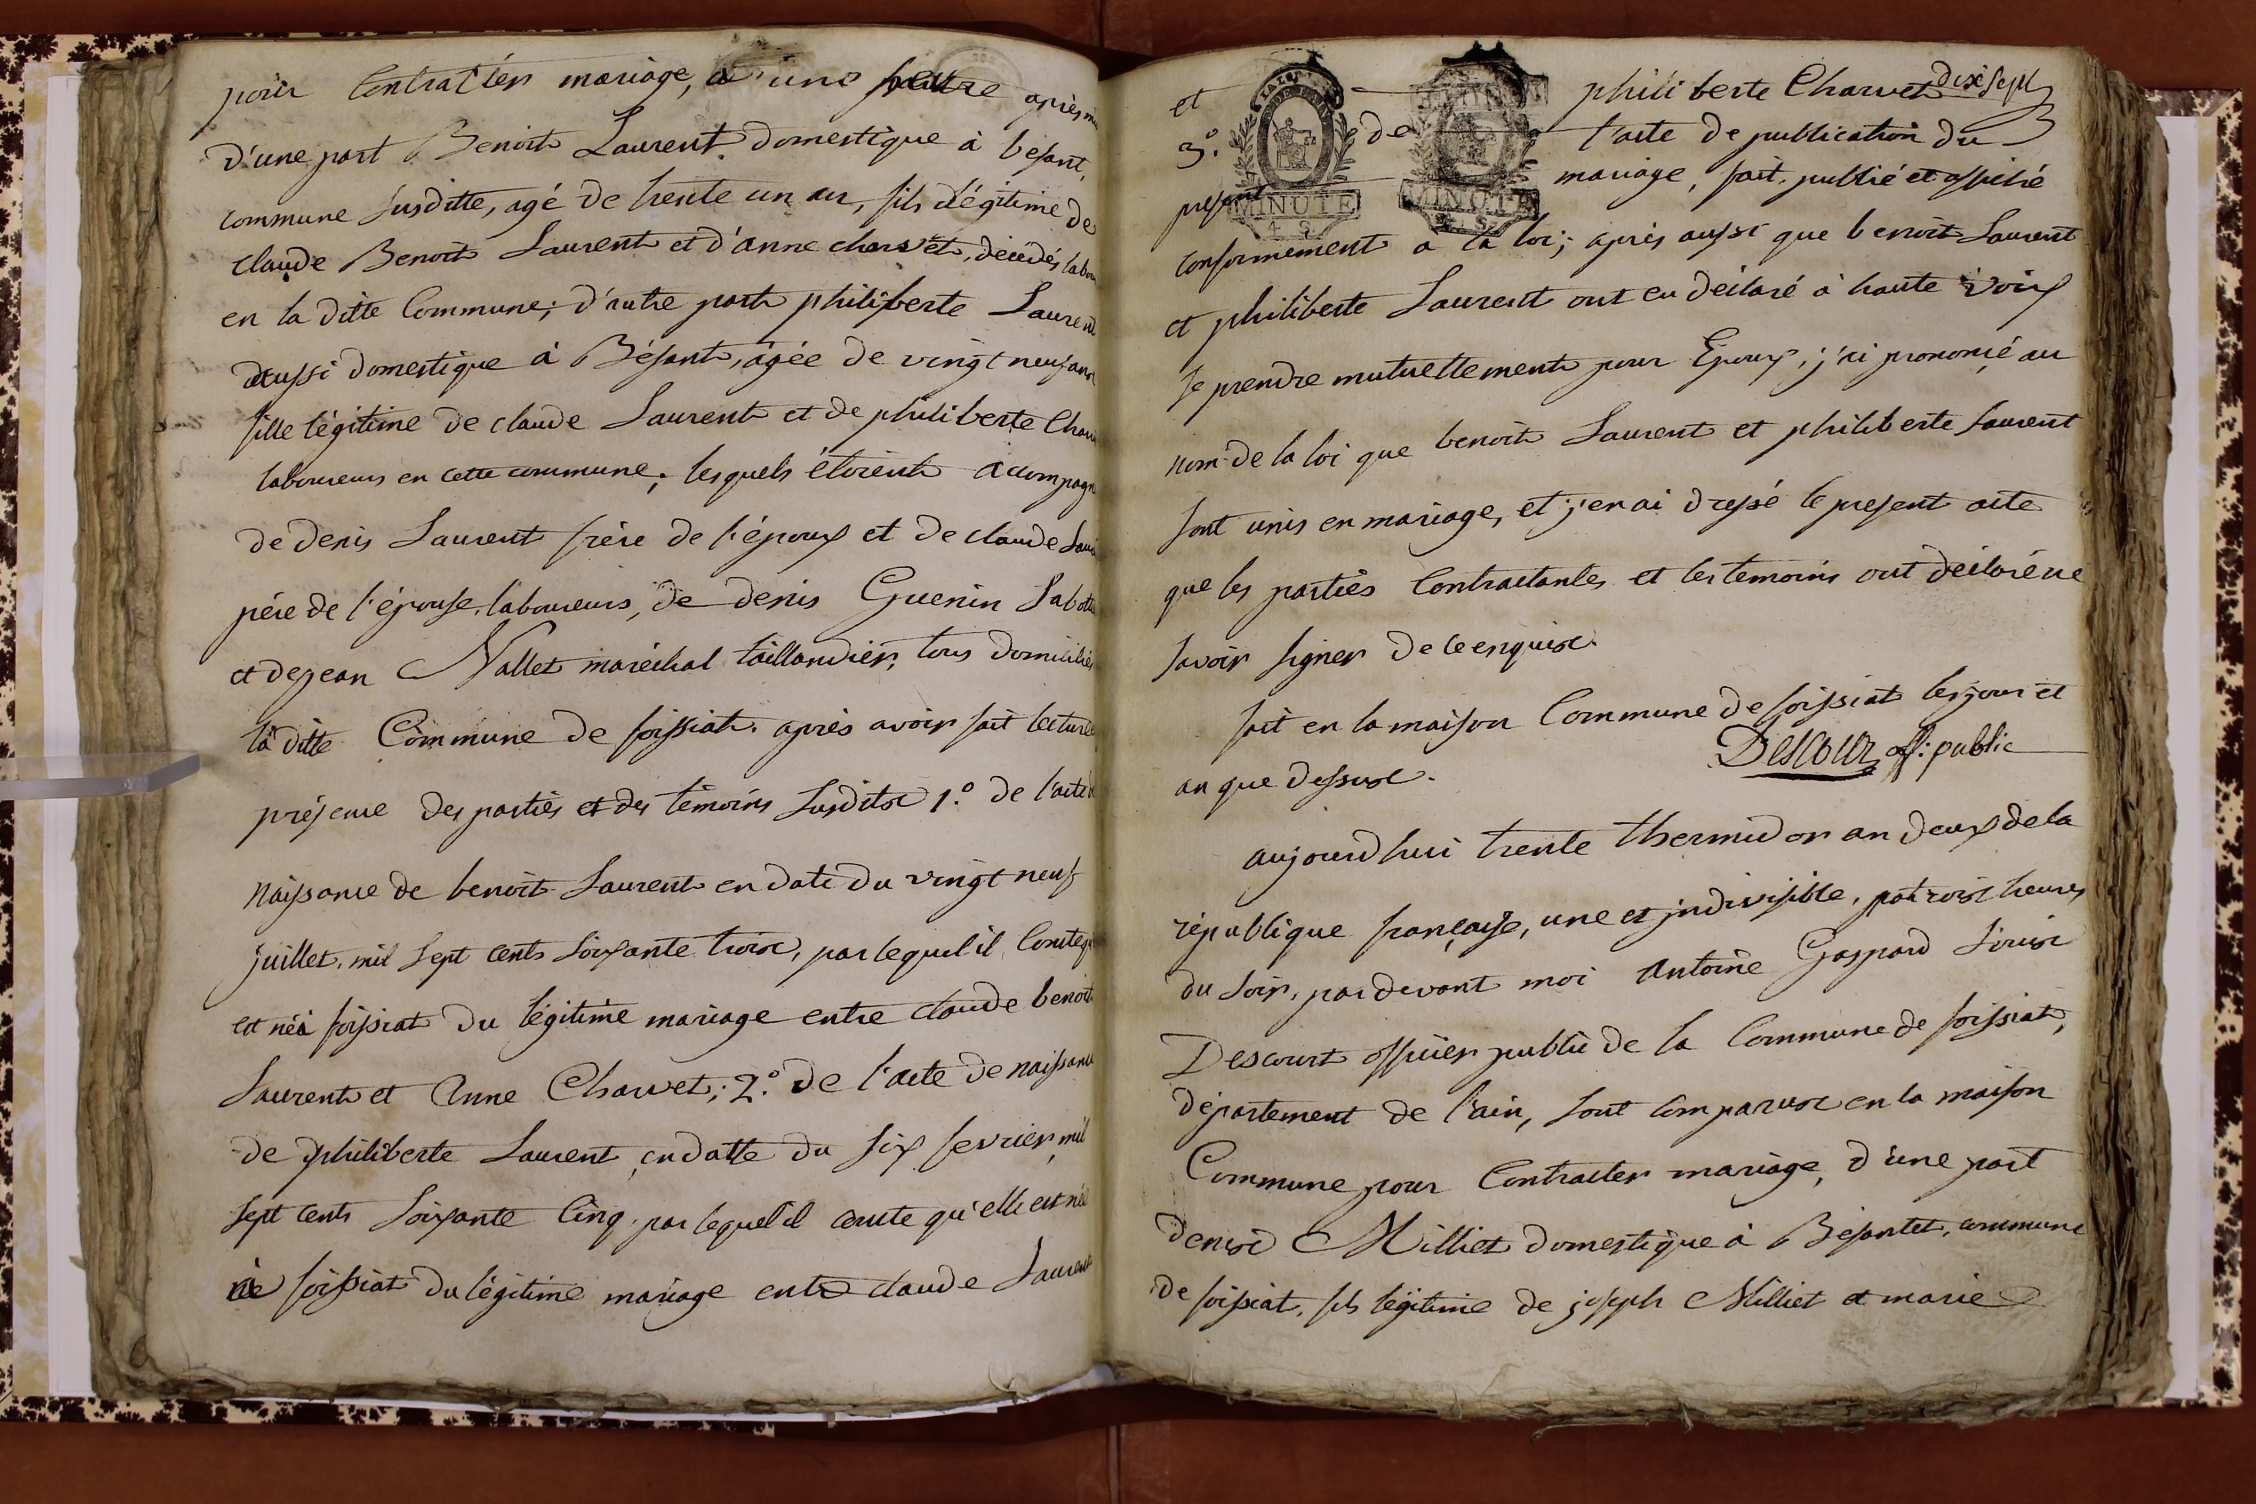 pour Contracter mariage, a une heure après mi
d'une part Benoit Laurent domestique à besant,
commune susditte, agé de trente un an, fils légitime de
claude Benoit Laurent et d'anne charvet, décédés labou
en la ditte Commune; d'autre part philiberte Laurent
aussi domestique à Bésant, agée de vingt neuf ans
fille légitime de claude Laurent et de philiberte Charv
laboureurs en cette commune; lesquels étoient acompagn
de denis Laurent frère de l'époux et de claude Laur
pére de l'épouse, laboureurs, de denis Guenin Sabotie
et de jean Nallet maréchal taillandier, tous domiciliés
la ditte Commune de foissiat. après avoir fait lecture
présence des partiës et des témoins susdits 1.° de l'acte d
naissance de benoit Laurent en date du vingt neuf
juillet, mil sept cents soixante trois, par lequel il conste qu
est né à foissiat du légitime mariage entre claude benoit
Laurent et Anne Charvet; 2.° de l'acte de naissance
de philiberte Laurent, en datte du six fevrier, mil
sept cents soixante cinq, par lequel il conste qu'elle est née
à foissiat du légitime mariage entre claude Laurent
dix sept
et philiberte Charvet
3.° de l'acte de publication du
present mariage, fait, publié et affiché
MINUTE
4 S.
MINUTE
4. S.
conformement a la loi; après aussi que benoit Laurent
et philiberte Laurent ont eu déclaré à haute voix
se prendre mutuellement pour Epoux, j'ai prononçé au
nom de la loi que benoit Laurent et philiberte Laurent
sont unis en mariage, et j'en ai dressé le present acte
que les partiës Contractantes et les temoins ont déclaré ne
savoir signer de ce enquis.
fait en la maison Commune de foissiat les jour et
an que dessus.
Descour off: public
aujourd'hui trente thermidor an deux de la
république française, une et indivisible, heures
du soir, par devant moi antoine Gaspard
Descourt officier public de la Commune de foissiat,
département de l'ain, sont comparus en la maison
Commune pour Contracter mariage, d'une part
denis Milliet domestique à Bésantet, commune
de foissiat, fils légitime de joseph Milliet et marie